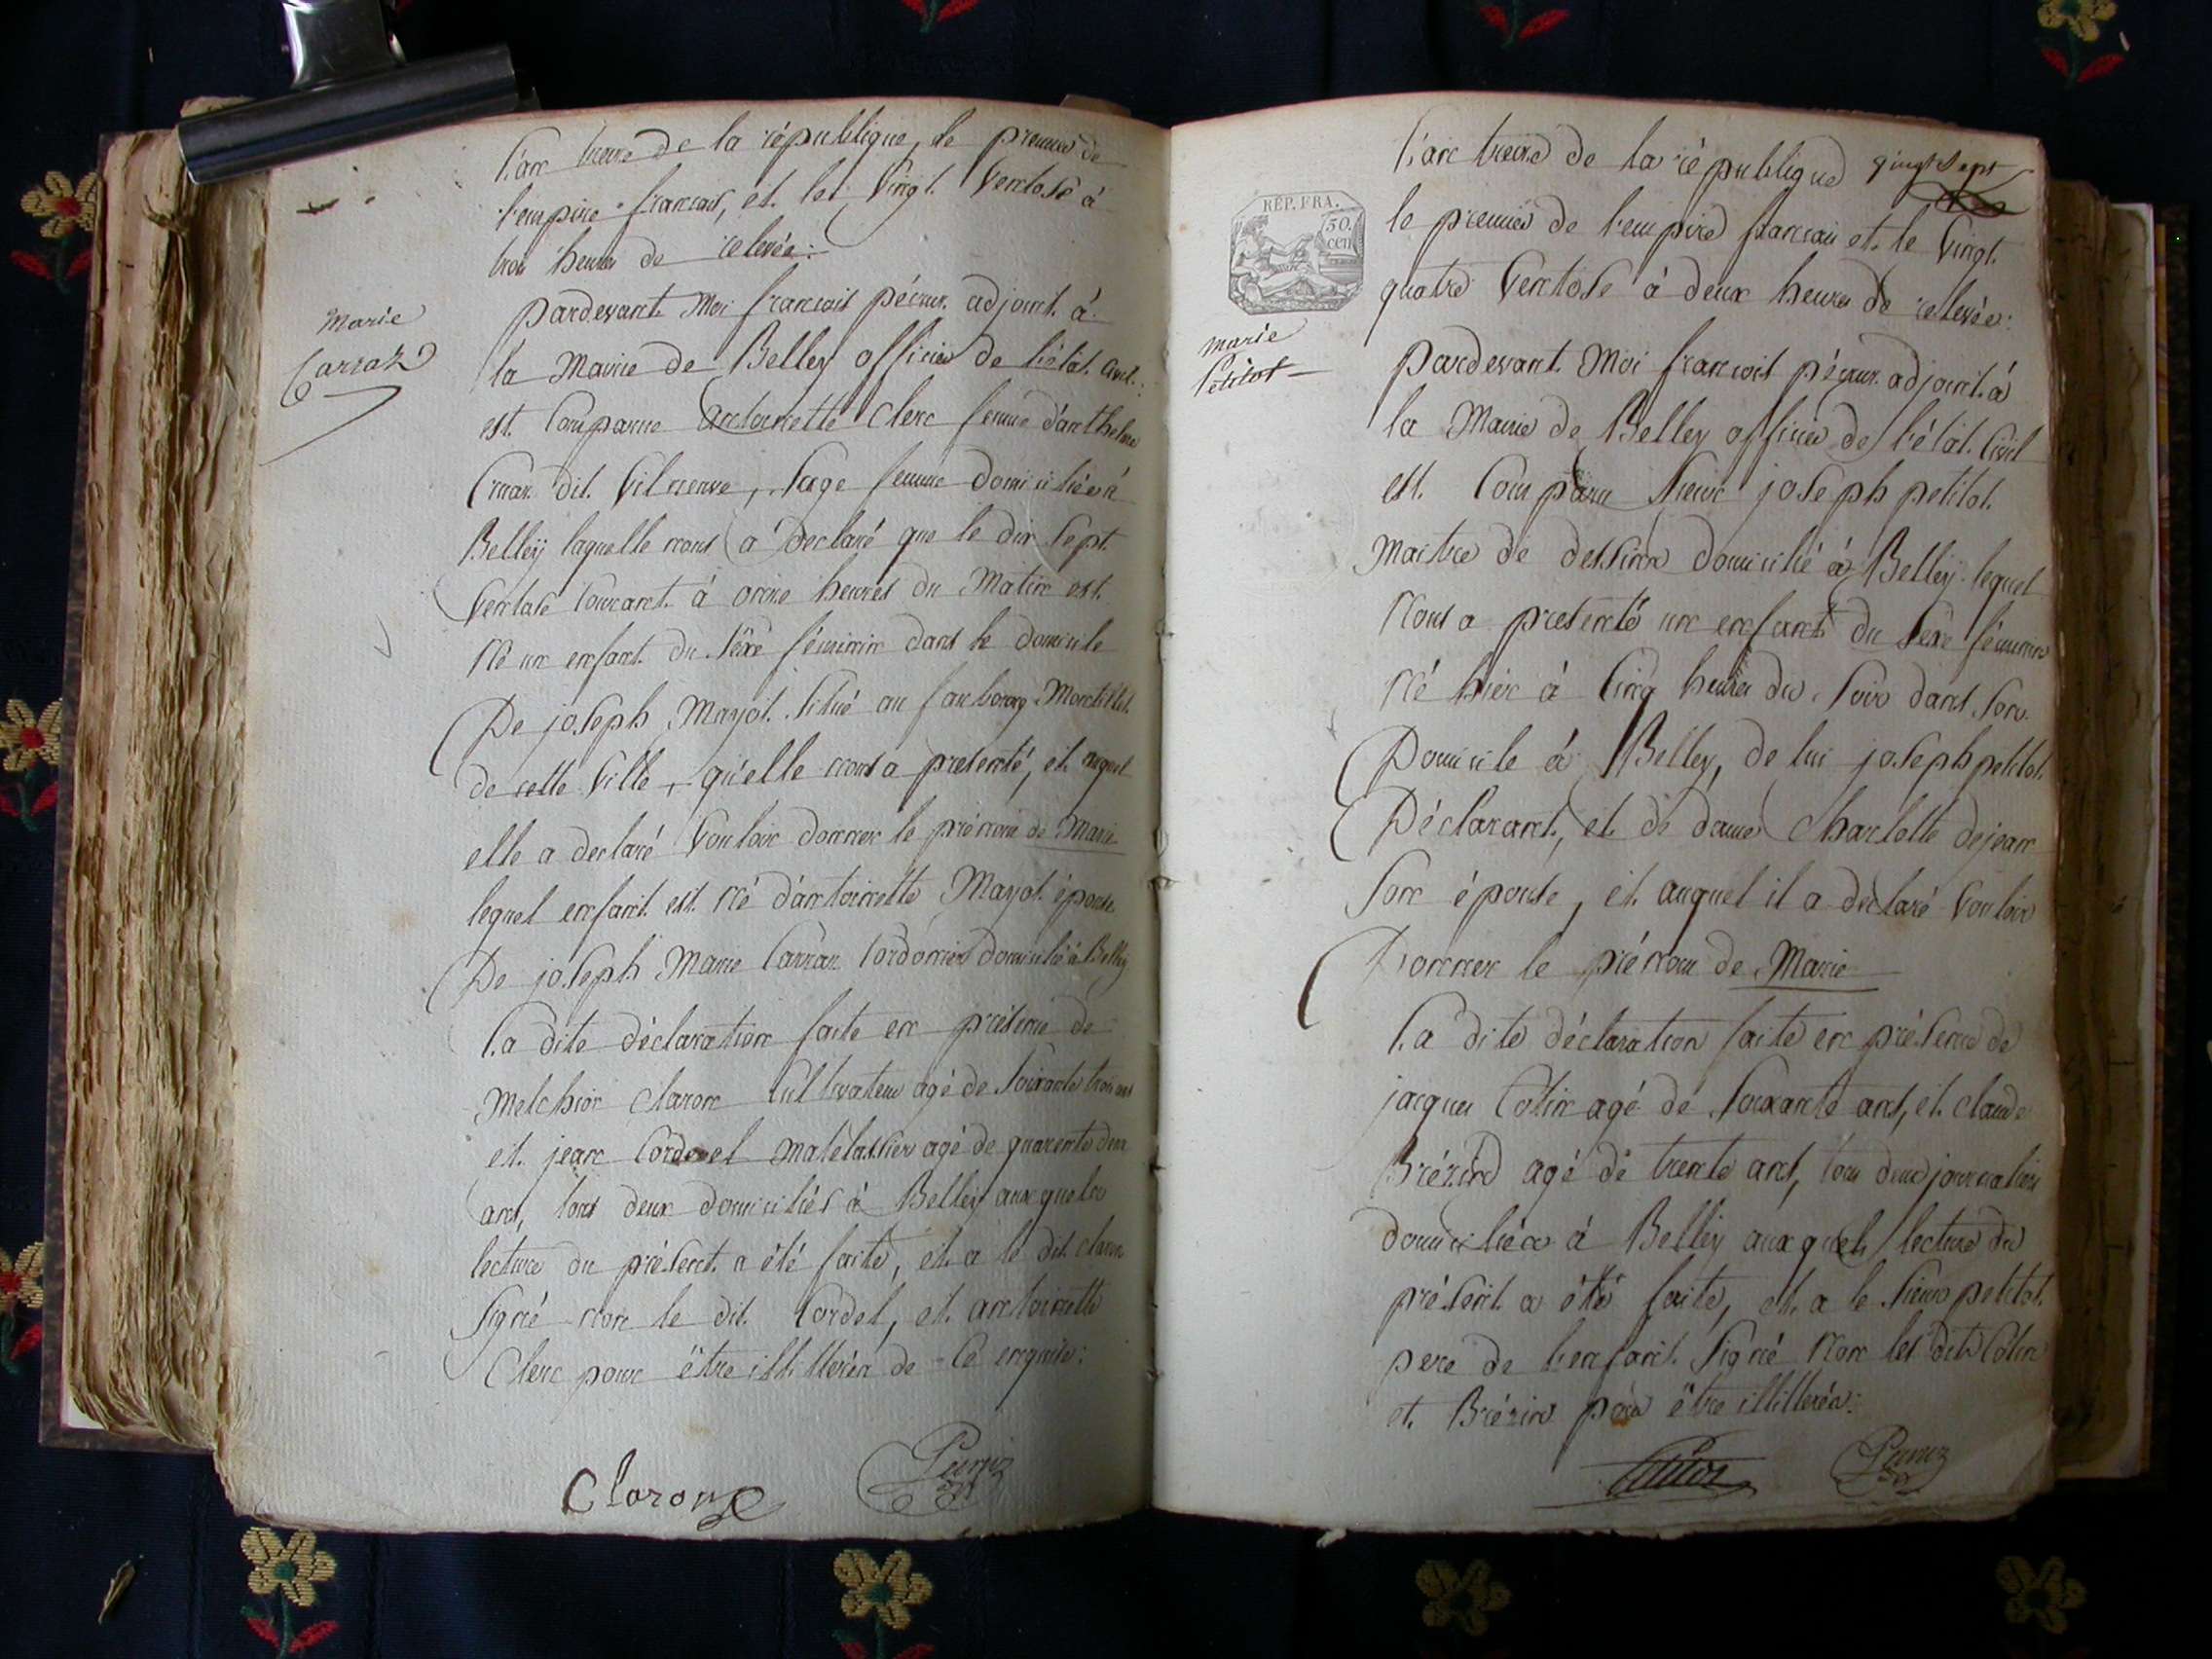 L'an treize de la république, le premier de
l'empire francais, et le Vingt Ventose à
trois heures de relevée:
Marie
Carraz
pardevant Moi francois pécux adjoint à
la Mairie de Belley officier de l'état Civil:
est Comparue Antoinette Clerc femme d'anthelme
Cruax dit Vilneuve, Sage femme domiciliée à
Belleÿ laquelle nous a declaré que le dix Sept
Ventose Courant à onze heures du Matin est
Né un enfant du Sèxe féminin dans le domicile
De joseph Mayot Situé au faubourg Montillet
de cette Ville, qu'elle nous a presenté, et auquel
elle a declaré Vouloir donner le prénom de Marie
lequel enfant est Né d'antoinette Mayot épouse
De joseph Marie Carraz Cordonnier domicilié à Belley
La dite déclaration faite en présence de
Melchior Claron Cultivateur agé de Soixante trois ans
et jean Cordel Matelassier agé de quarante deux
ans, tous deux domiciliés à Belley auxquels
lecture du présent a été faite, et a le dit claron
Signé non le dit Cordel, et antoinette
Clerc pour être illitterés de Ce enquis:
Claron
REP. FRA.
50.
cen
L'an treize de la république
Vingt Sept
le premier de l'empire francais et le Vingt
quatre Ventose à deux heures de relevée:
marie
Petitot
Pardevant Moi francois pécux adjoint à
la Mairie de Belley officier de l'état Civil
est Comparu Sieur joseph petitot
Maitre de dessinn domicilié à Belleÿ lequel
Nous a presenté un enfant du Sexe féminin
Né hier à Cinq heures du Soir dans Son
Domicile à Belley, de lui joseph petitot
Déclarant, et de dame Charlotte dejean
Son épouse, et auquel il a déclaré Vouloir
Donner le prénom de Marie
La dite déclaration faite en présence de
jacques Colin agé de Soixante ans, et claude
Brézin agé de trente ans, tous deux journaliers
domiciliés à Belleÿ auxquels lecture du
présent a été faite, et a le Sieur petitot
pere de l'enfant Signé Non les dits Colin
et Brézin pour être illitterés:
Petitot